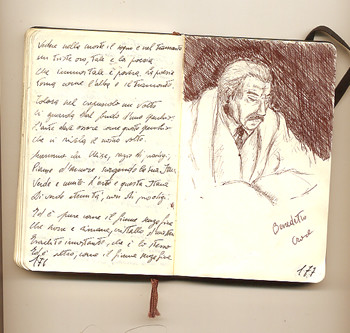 Vedere nella morte il sogno e nel tramonto
un triste oro, tale è la poesia
che immortale è povera. La poesia
torna come l'alba e il tramonto.
Talora nel crepuscolo un volto
ci guarda dal fondo d'uno specchio.
L'arte deve essere come quello specchio
che ci rivela il nostro volto.
Narrano che Ulisse, sazio di prodigi,
Pianse d'amore scorgendo la sua Itaca
Verde e umile. L'arte è questa Itaca
Di verde eternità, non di prodigi.
Ed è pure come il fiume senza fine
che scorre e rimane, cristallo d'uno stesso
Eraclito incostante, che è lo stesso
Ed è altro, come il fiume senza fine
176
Benedetto
Croce
177